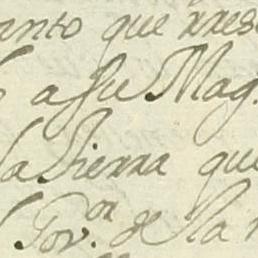 anto que
a Su Mag.
la Sierra que
Gov.or de la